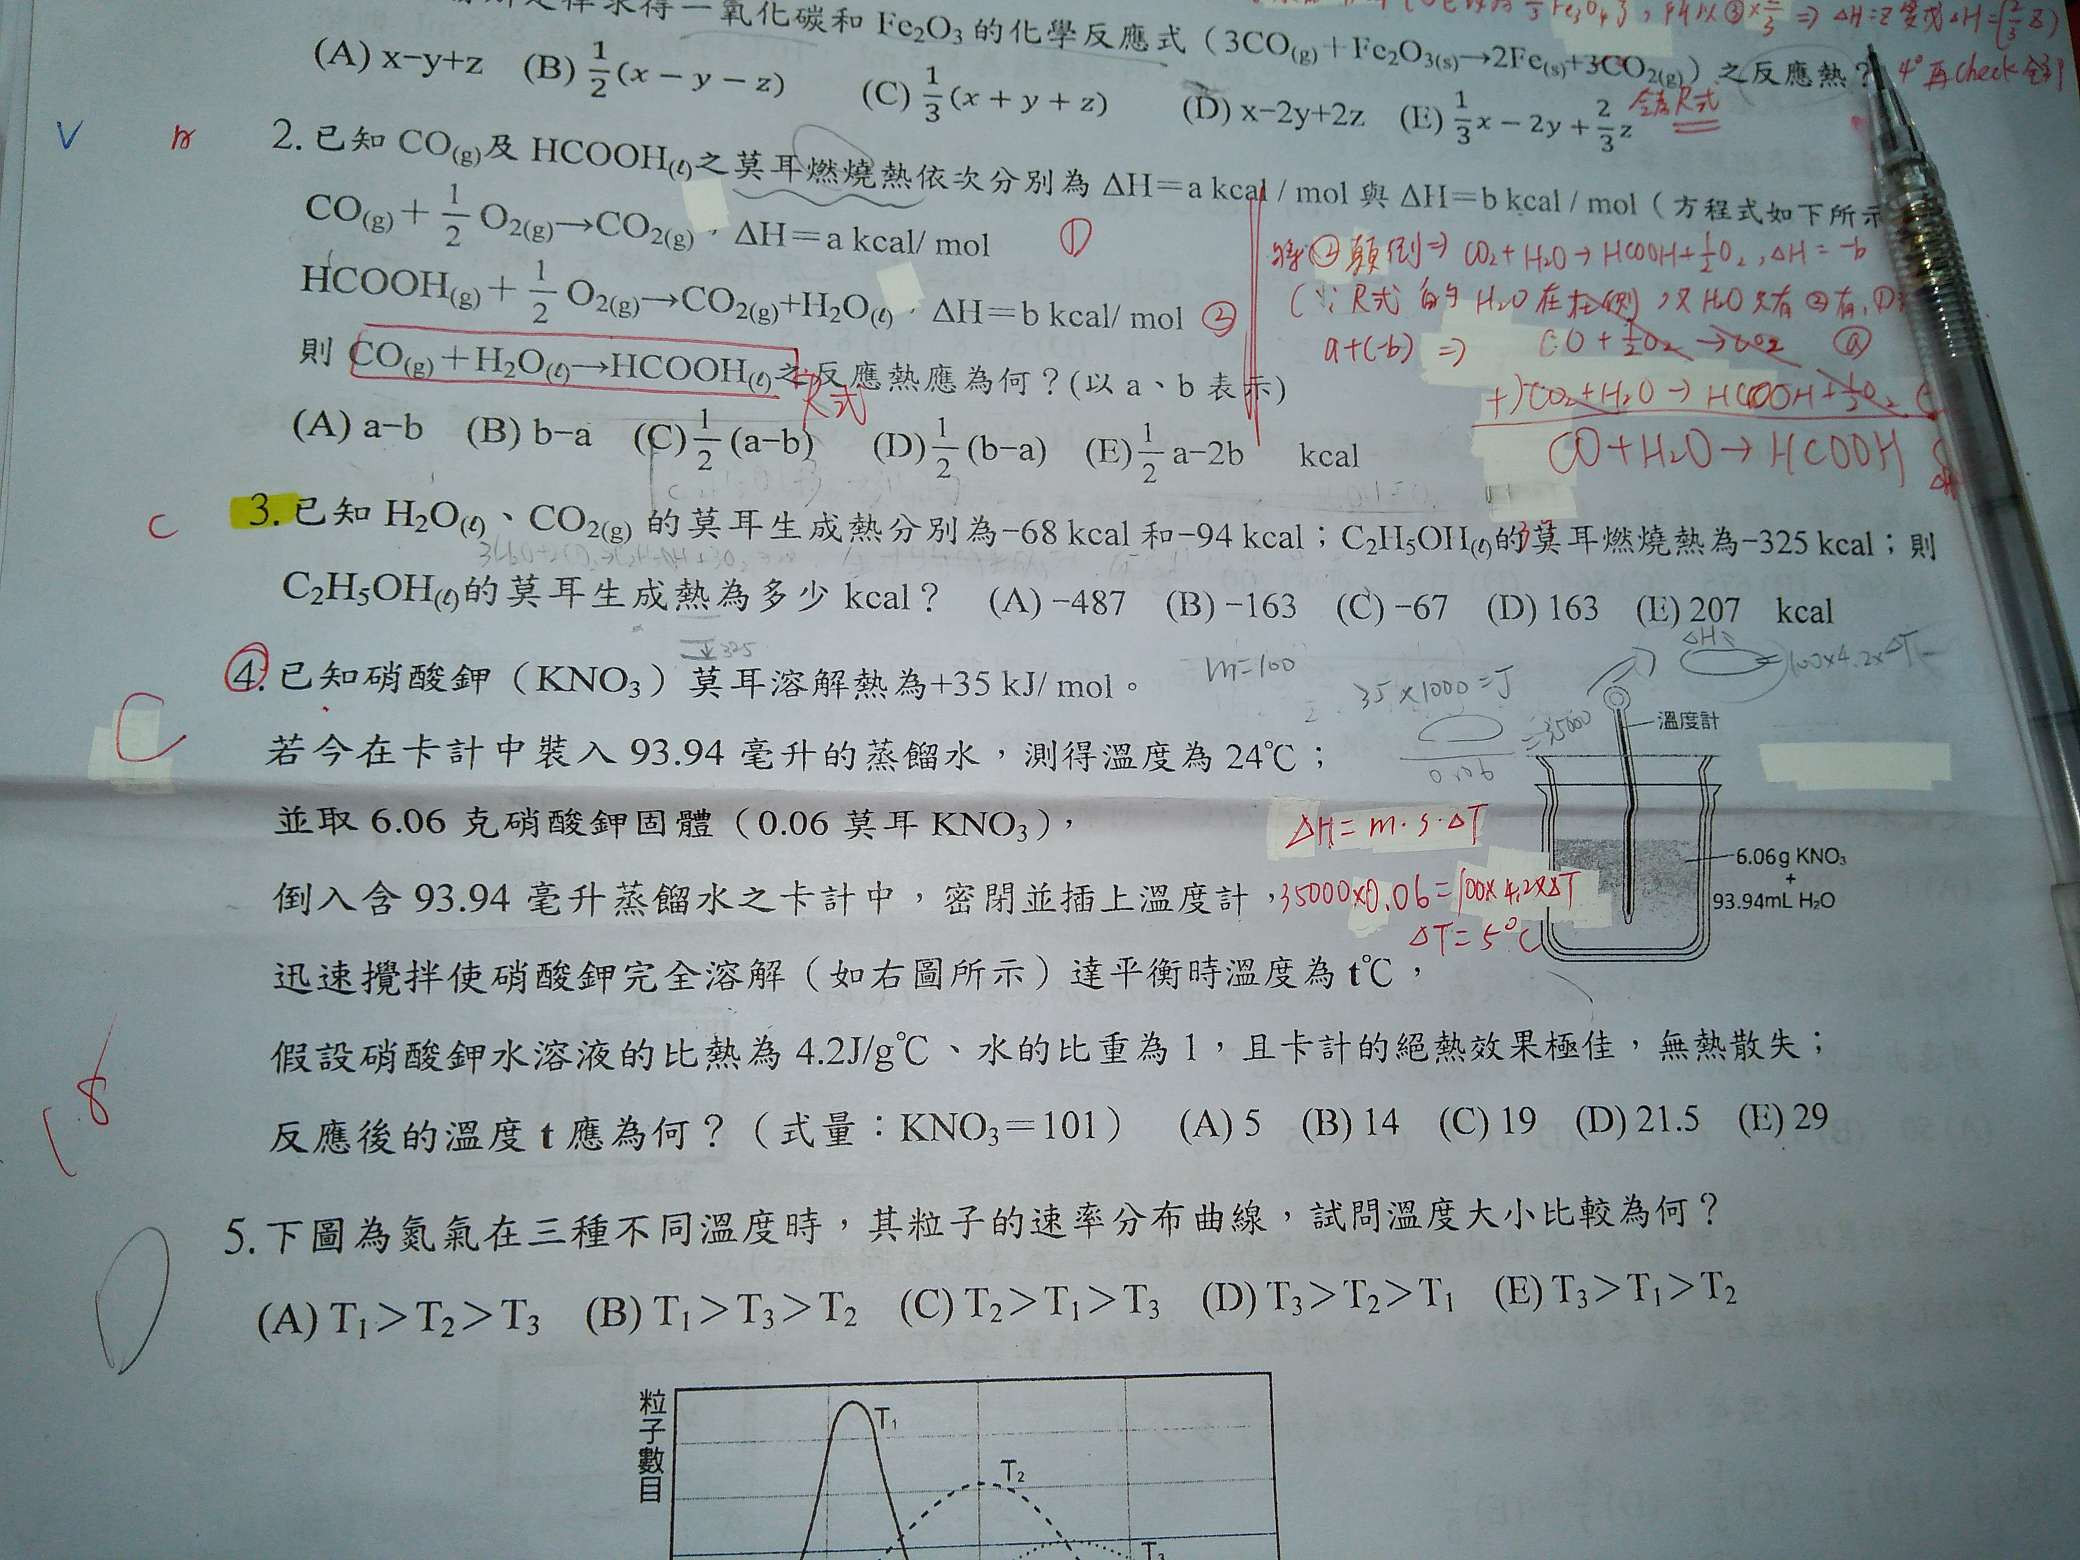 求得一氧化碳和 Fe₂O₃ 的化學反應式（3CO(g)＋Fe₂O₃(s)→2Fe(s)+3CO₂(g)）之反應熱？
4° 再 check
(A) x−y+z (B) 1/2(x − y − z) (C) 1/3(x + y + z) (D) x−2y+2z (E) 1/3x − 2y + 2/3z
R式
2. 已知 CO(g)及 HCOOH(ℓ)之莫耳燃燒熱依次分別為 ΔH＝a kcal / mol 與 ΔH＝b kcal / mol（方程式如下所示
CO(g)＋1/2 O₂(g)→CO₂(g)，ΔH＝a kcal/ mol ①
HCOOH(g)＋1/2 O₂(g)→CO₂(g)+H₂O(ℓ)，ΔH＝b kcal/ mol ②
則 CO(g)＋H₂O(ℓ)→HCOOH(ℓ)之反應熱應為何？(以 a、b 表示)
R式
(A) a−b (B) b−a (C) 1/2 (a−b) (D) 1/2 (b−a) (E) 1/2 a−2b kcal
將②顛倒⇒ CO₂+H₂O→HCOOH+1/2O₂, ΔH = −b
(∵R式的 H₂O 在左側, 又 H₂O 只有②有,
a+(−b) ⇒ CO + 1/2O₂ → CO₂ ⓐ
+) CO₂+H₂O → HCOOH+1/2O₂
CO+H₂O→HCOOH
C
3. 已知 H₂O(ℓ)、CO₂(g) 的莫耳生成熱分別為−68 kcal 和−94 kcal；C₂H₅OH(ℓ)的莫耳燃燒熱為−325 kcal；則
C₂H₅OH(ℓ)的莫耳生成熱為多少 kcal？ (A) −487 (B) −163 (C) −67 (D) 163 (E) 207 kcal
C
4. 已知硝酸鉀（KNO₃）莫耳溶解熱為+35 kJ/ mol。
m=100
35×1000=J
=35000
0.06
ΔH
=100×4.2×ΔT
若今在卡計中裝入 93.94 毫升的蒸餾水，測得溫度為 24℃；
並取 6.06 克硝酸鉀固體（0.06 莫耳 KNO₃），
倒入含 93.94 毫升蒸餾水之卡計中，密閉並插上溫度計，
迅速攪拌使硝酸鉀完全溶解（如右圖所示）達平衡時溫度為 t℃，
假設硝酸鉀水溶液的比熱為 4.2J/g℃、水的比重為 1，且卡計的絕熱效果極佳，無熱散失；
反應後的溫度 t 應為何？（式量：KNO₃＝101） (A) 5 (B) 14 (C) 19 (D) 21.5 (E) 29
ΔH = m·s·ΔT
35000×0.06=100×4.2×ΔT
ΔT= 5°C
溫度計
6.06g KNO₃
+
93.94mL H₂O
5. 下圖為氮氣在三種不同溫度時，其粒子的速率分布曲線，試問溫度大小比較為何？
(A) T₁＞T₂＞T₃ (B) T₁＞T₃＞T₂ (C) T₂＞T₁＞T₃ (D) T₃＞T₂＞T₁ (E) T₃＞T₁＞T₂
粒子數目
T₁
T₂
T₃